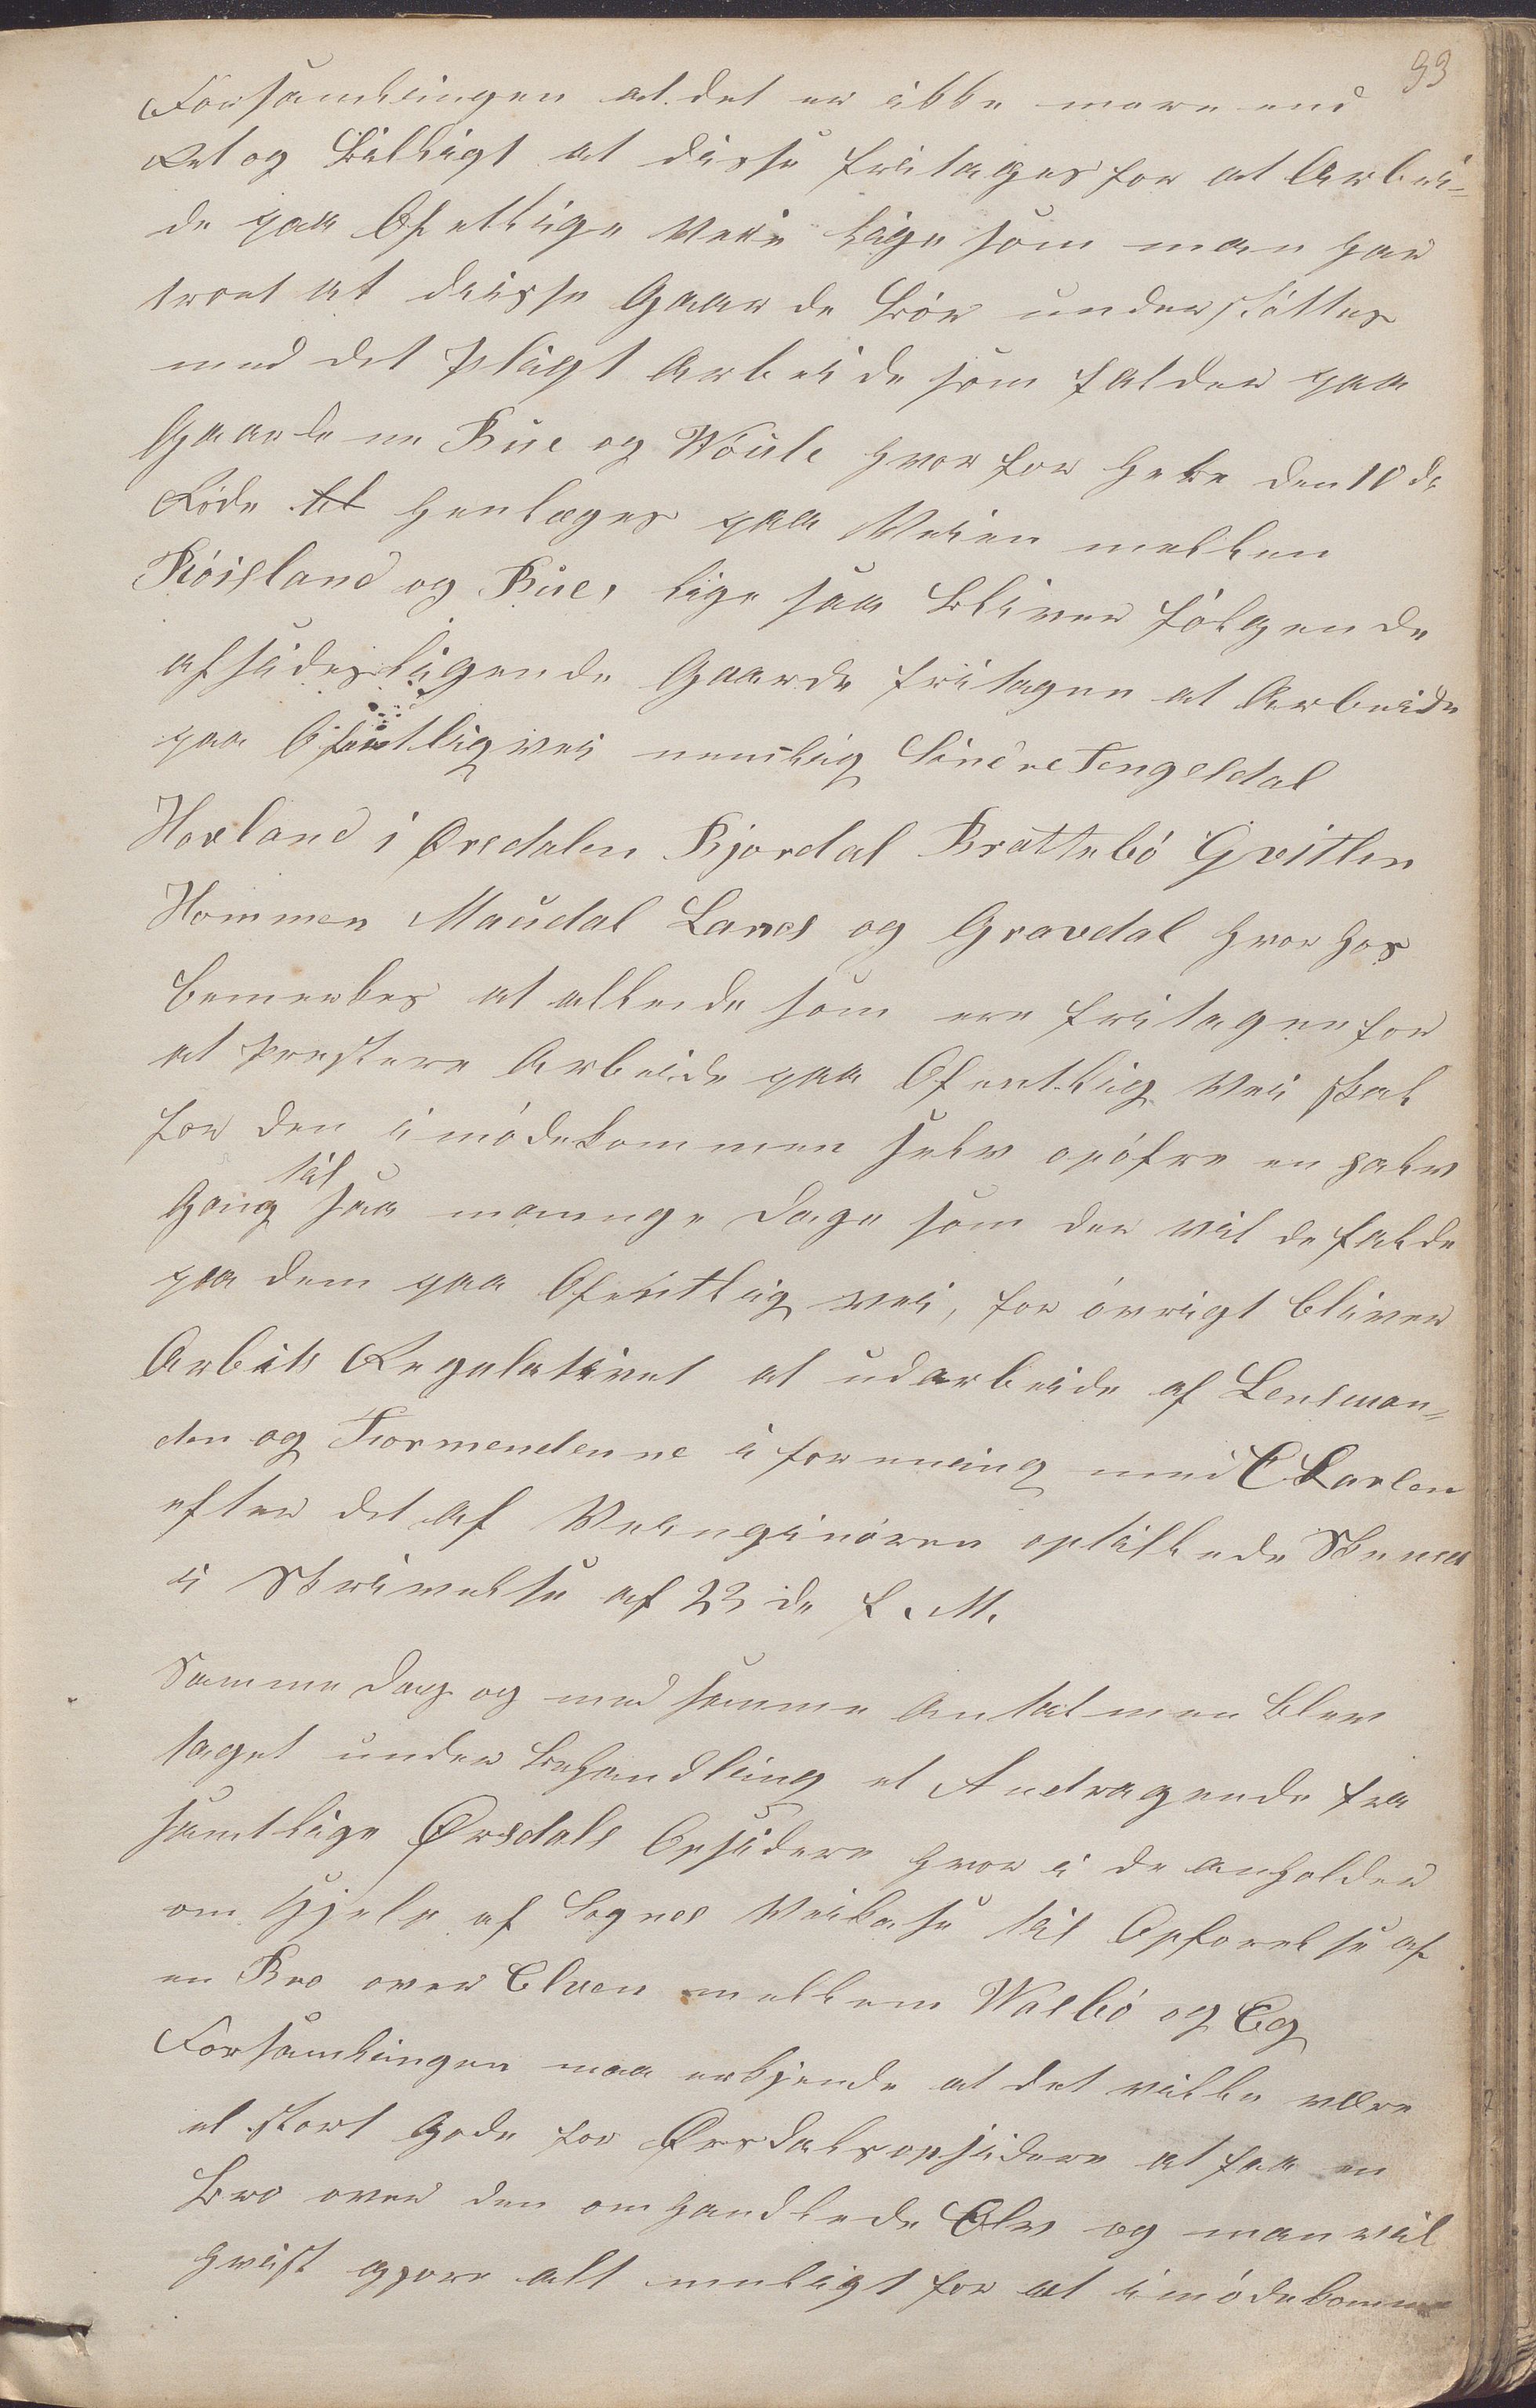 93
Forsamlingen at det er ikke mere end
Ret og Billigt at disse fritages for at Arbei-
de paa Ofetlige Veie lige som man har
troet at deisse Gaarde bör understöttes
med det Pligt Arbeide som falder paa
Gaardene Bue og Nöisle hvorfor hele den 10de
Rode henlægges paa Veien mellem
Röisland og Bue, lige saa bliver fölgende
afsidesligende Gaarde fritagen at Arbeide
paa Ofentlig vei nemlig Sindre Tengesdal
Hovland i Örsdalen Bjordal Brattebö Gvitlen
Hommen Maudal Lanes og Gravdal hvorhos
bemerkes at alle de som ere fritagen for
at Prestere Arbeide paa Ofentlig Vei skal
for den imödekommen selv opöfre en halv
til
Gang saa mannge Dage som der vil de falde
paa dem paa Ofentlig vei, for övrigt bliver
Arbeits Regulativet at udarbeide af Lensman-
den og Formendenne i forening med C Carlsen
efter det af Veingeniören opstillede Skema
i Skrivelse af 23de f. M.
Samme Dag og med samme Antal men blev
taget under Behandling et Andragende fra
samtlige Örsdals Opsidere hvor i de anholder
om Hjelp af Sognes Veikasse til Opförelse af
en Bro over Elven mellem Valbö og Eg
Forsamlingen maa erkjende at det vilde være
et stort Gode for Örsdalsopsidere at faa en
Bro over den omhandlede Elv og man vil
hvist gjöre alt muligt for at imödekomme